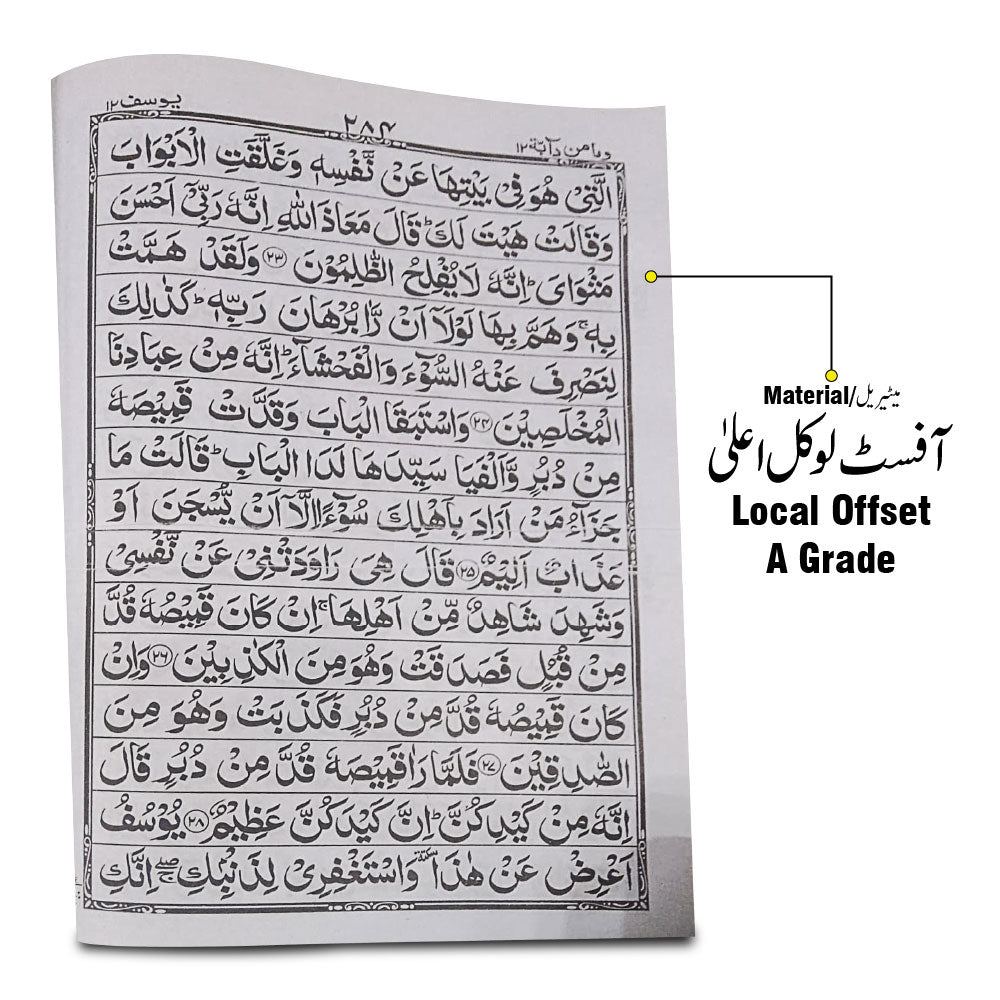 یوسف ۱۲
۲۸۴
وما من دآبة ۱۲
الَّتِیْ هُوَ فِیْ بَیْتِهَا عَنْ نَّفْسِهٖ وَغَلَّقَتِ الْاَبْوَابَ
وَقَالَتْ هَیْتَ لَكَ ؕ قَالَ مَعَاذَ اللّٰهِ اِنَّهٗ رَبِّیْۤ اَحْسَنَ
مَثْوَایَ ؕ اِنَّهٗ لَا یُفْلِحُ الظّٰلِمُوْنَ ﴿۲۳﴾ وَلَقَدْ هَمَّتْ
بِهٖ ۚ وَهَمَّ بِهَا لَوْلَاۤ اَنْ رَّاٰ بُرْهَانَ رَبِّهٖ ؕ كَذٰلِكَ
لِنَصْرِفَ عَنْهُ السُّوْٓءَ وَالْفَحْشَآءَ ؕ اِنَّهٗ مِنْ عِبَادِنَا
الْمُخْلَصِیْنَ ﴿۲۴﴾ وَاسْتَبَقَا الْبَابَ وَقَدَّتْ قَمِیْصَهٗ
مِنْ دُبُرٍ وَّاَلْفَیَا سَیِّدَهَا لَدَا الْبَابِ ؕ قَالَتْ مَا
جَزَآءُ مَنْ اَرَادَ بِاَهْلِكَ سُوْٓءًا اِلَّاۤ اَنْ یُّسْجَنَ اَوْ
عَذَابٌ اَلِیْمٌ ﴿۲۵﴾ قَالَ هِیَ رَاوَدَتْنِیْ عَنْ نَّفْسِیْ
وَشَهِدَ شَاهِدٌ مِّنْ اَهْلِهَا ۚ اِنْ كَانَ قَمِیْصُهٗ قُدَّ
مِنْ قُبُلٍ فَصَدَقَتْ وَهُوَ مِنَ الْكٰذِبِیْنَ ﴿۲۶﴾ وَاِنْ
كَانَ قَمِیْصُهٗ قُدَّ مِنْ دُبُرٍ فَكَذَبَتْ وَهُوَ مِنَ
الصّٰدِقِیْنَ ﴿۲۷﴾ فَلَمَّا رَاٰ قَمِیْصَهٗ قُدَّ مِنْ دُبُرٍ قَالَ
اِنَّهٗ مِنْ كَیْدِكُنَّ ؕ اِنَّ كَیْدَكُنَّ عَظِیْمٌ ﴿۲۸﴾ یُوْسُفُ
اَعْرِضْ عَنْ هٰذَا ٚ وَاسْتَغْفِرِیْ لِذَنْۢبِكِ ۖۚ اِنَّكِ
Material/میٹیریل
آفسٹ لوکل اعلیٰ
Local Offset
A Grade